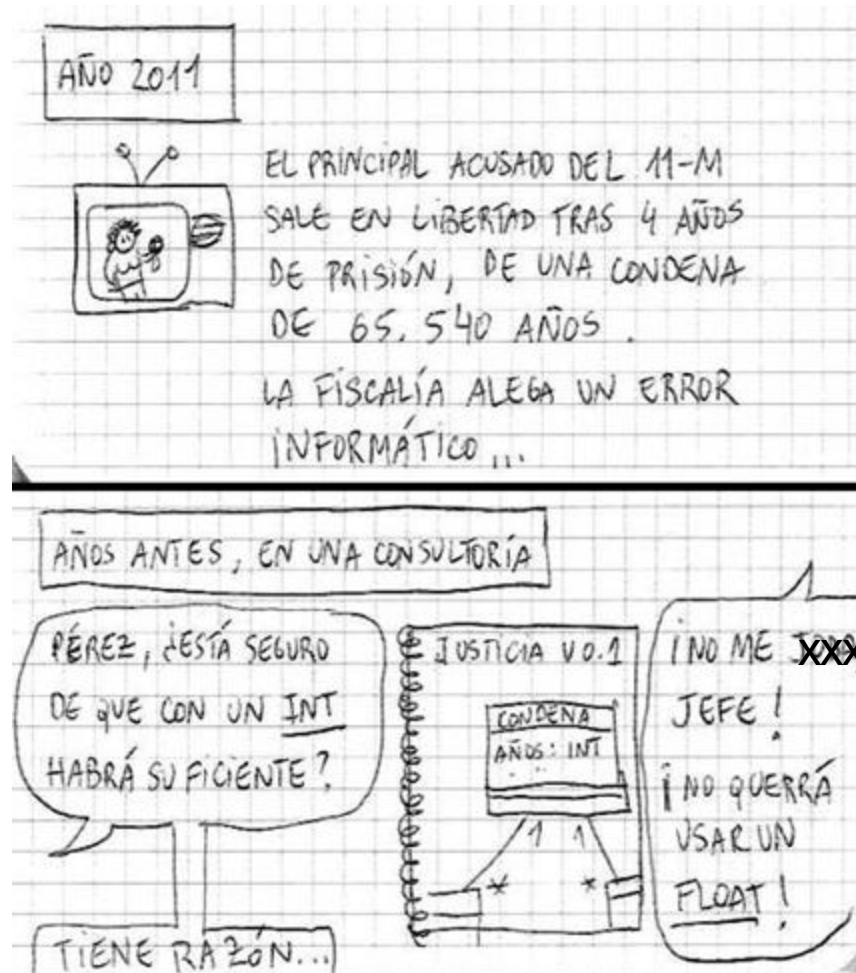 AÑO 2011
EL PRINCIPAL ACUSADO DEL 11-M
SALE EN LIBERTAD TRAS 4 AÑOS
DE PRISIÓN, DE UNA CONDENA
DE 65.540 AÑOS.
LA FISCALÍA ALEGA UN ERROR
INFORMÁTICO...
AÑOS ANTES, EN UNA CONSULTORÍA
PÉREZ, ¿ESTÁ SEGURO
DE QUE CON UN INT
HABRÁ SUFICIENTE?
TIENE RAZÓN...
JUSTICIA V0.1
CONDENA
AÑOS: INT
1 1
* *
¡NO ME XXX
JEFE!
¡NO QUERRÁ
USAR UN
FLOAT!